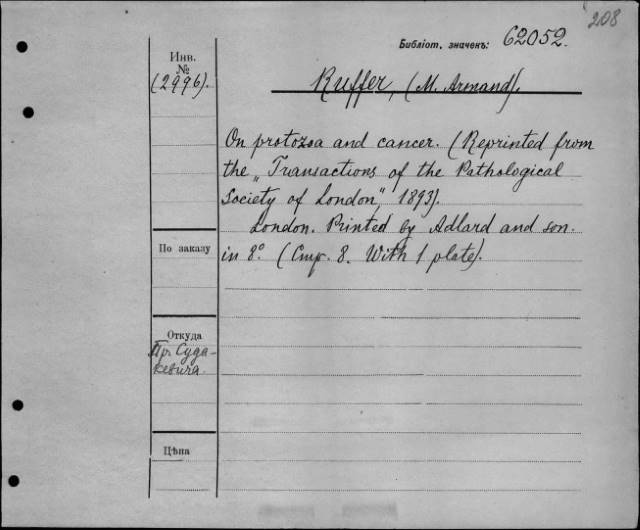 208
Библіот. значенъ: 62052.
Инв.
№
(2996).
Ruffer, (M. Armand).
On protozoa and cancer. (Reprinted from
the „Transactions of the Pathological
Society of London", 1893).
London. Printed by Adlard and son.
in 8°. (Стр. 8. With 1 plate).
По заказу
Откуда
Пр. Суда-
кевича.
Цѣна